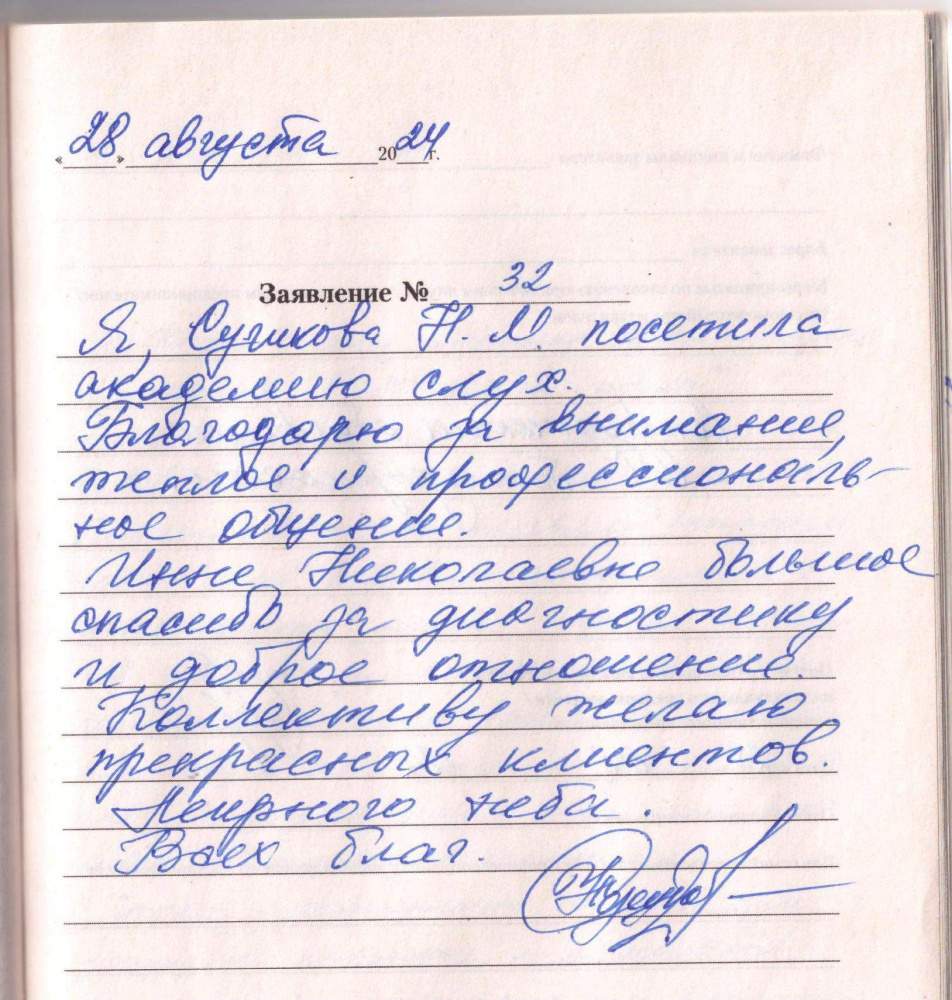 «28» августа 2024 г.
Заявление № 32
Я, Сушкова Н. М. посетила
академию слух.
Благодарю за внимание,
теплое и профессиональ-
ное общение.
Инне Николаевне большое
спасибо за диагностику
и доброе отношение.
Коллективу желаю
прекрасных клиентов.
Мирного неба.
Всех благ.